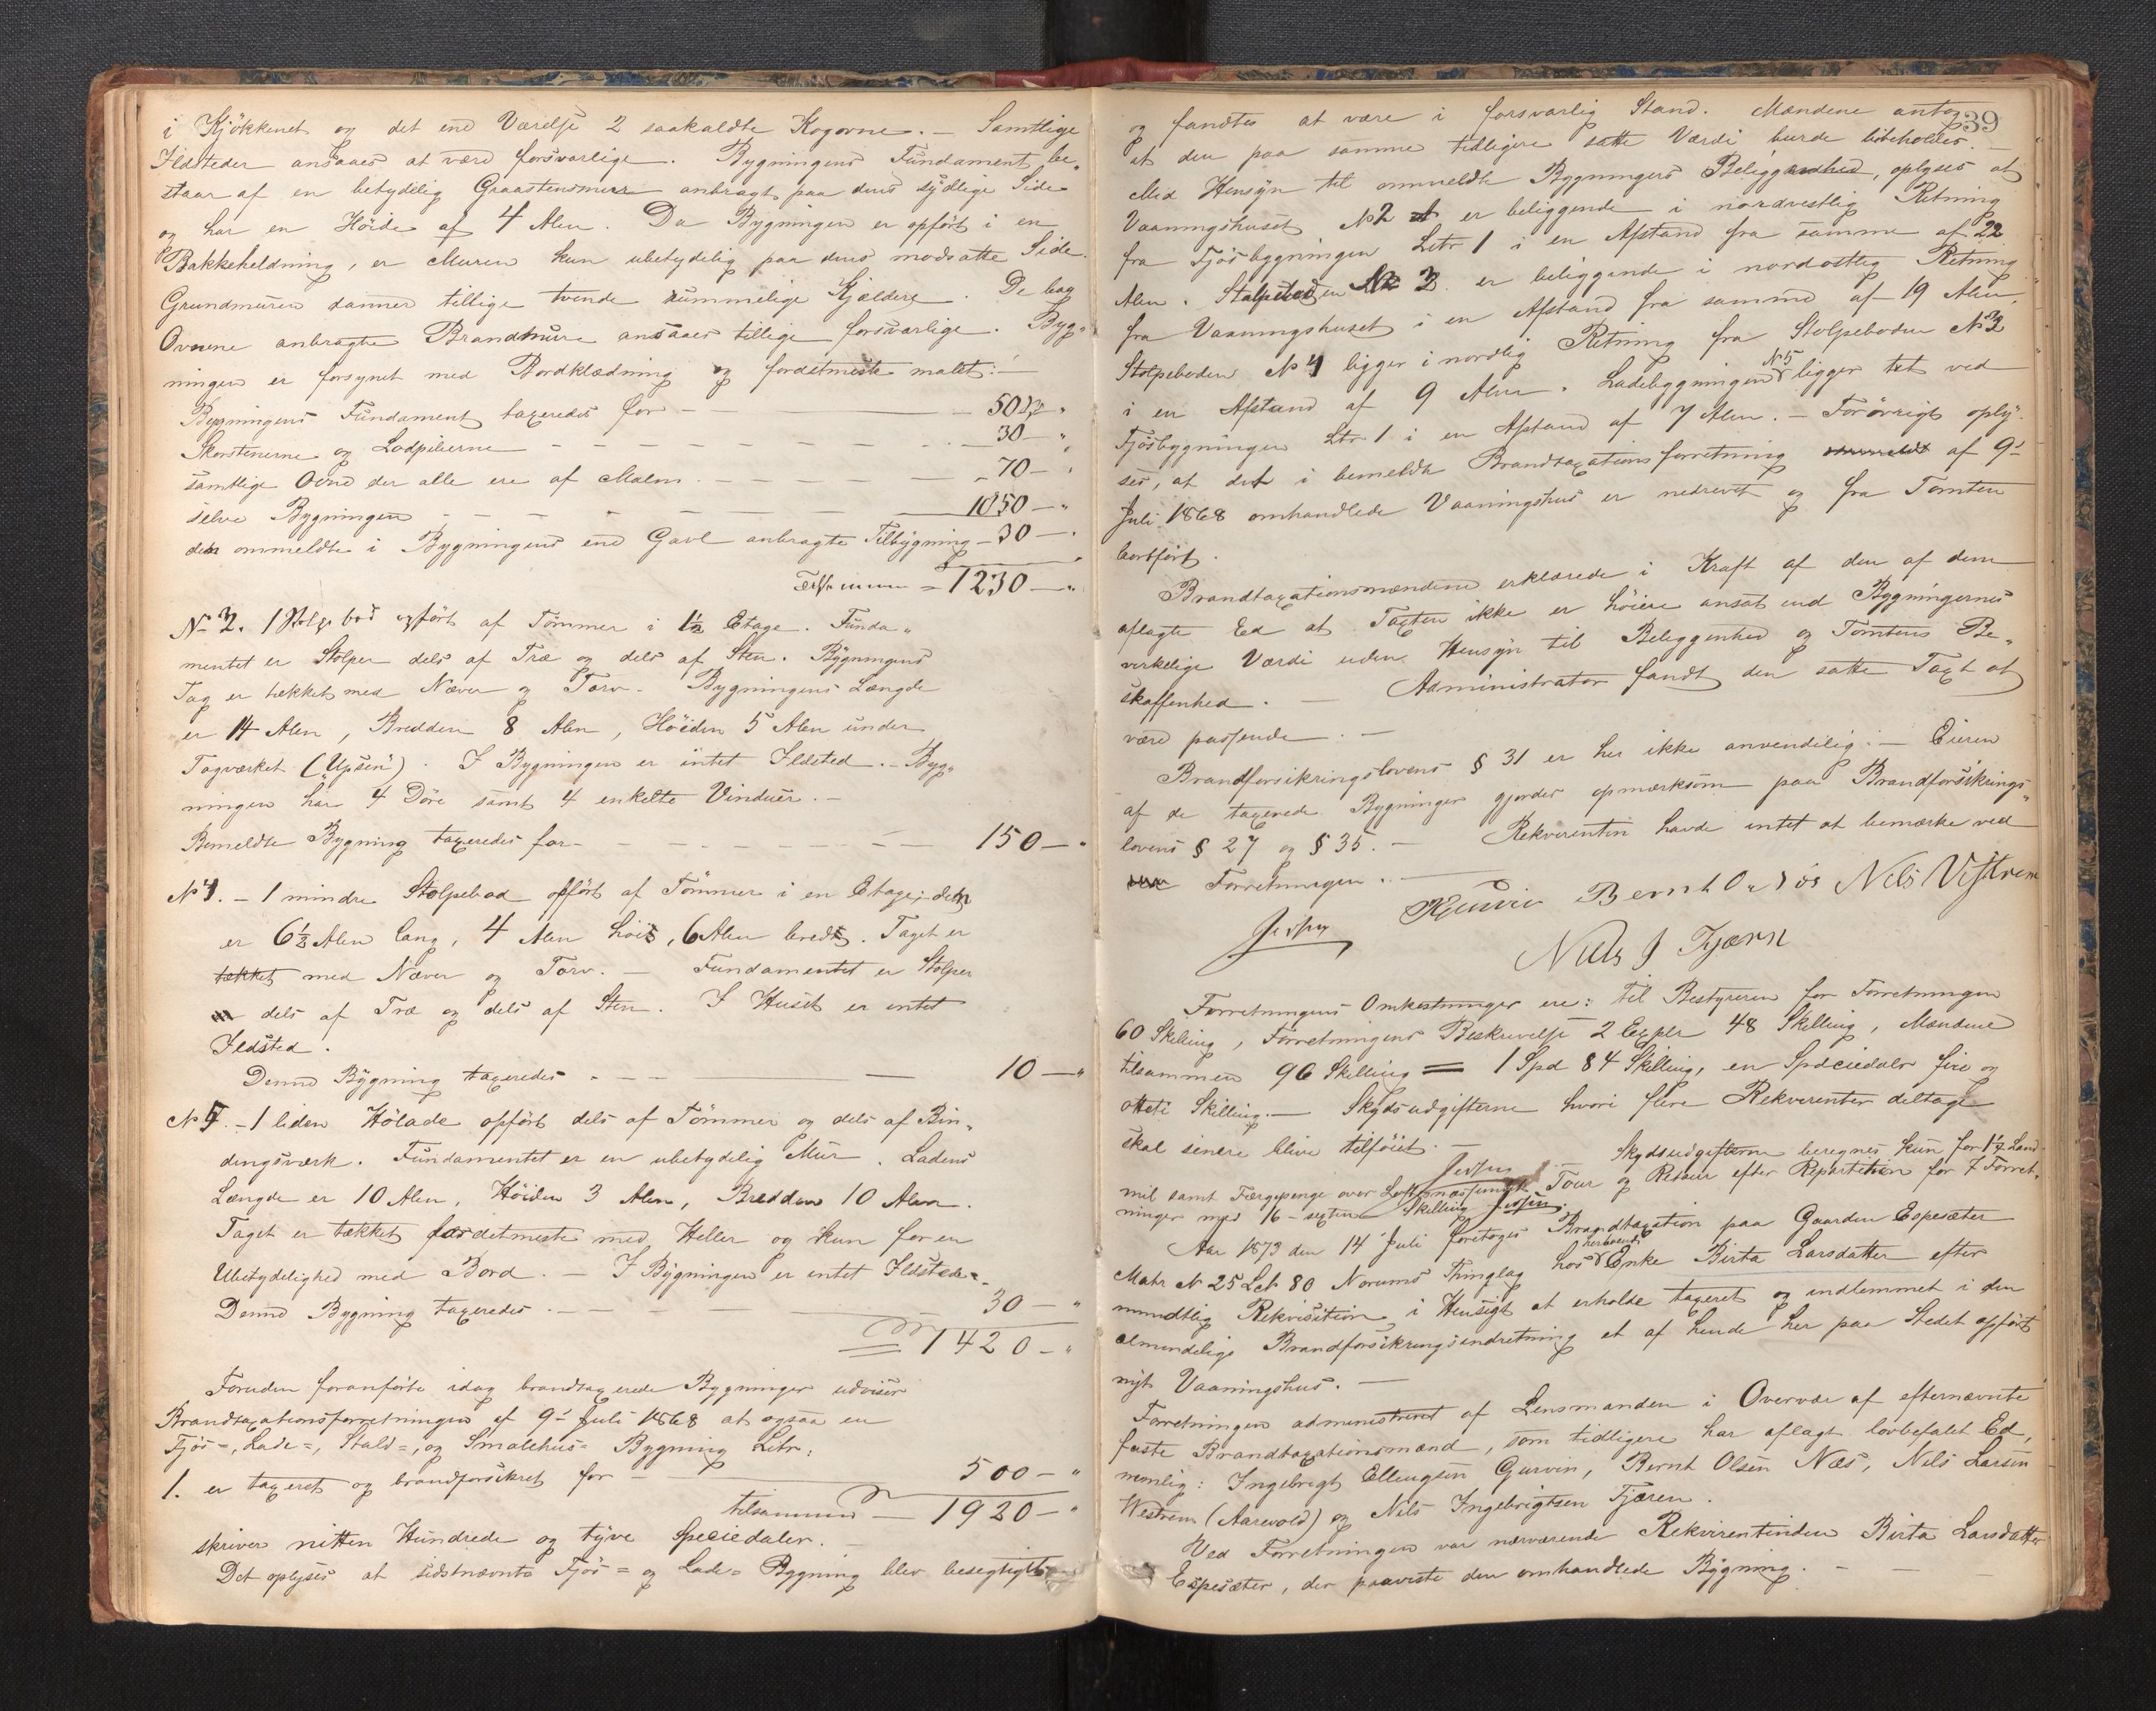 i Kjökkenet og det ene Værelse 2 saakaldte Kogovne. — Samtlige
Ildsteder ansaaes at være forsvarlige. Bygningens Fundament be„
staar af en betydelig Graastensmur anbragt paa dens sydlige Side
og har en Höide af 4 Alen. Da Bygningen er opført i en
Bakkeheldning, er Muren kun ubetydelig paa dens modsatte Side.
Grundmuren danner tillige tvende rummelige Kjældere. De bag
Ovnene anbragte Brandmure ansaaes tillige forsvarlige. Byg„
ningen er forsynet med Bordklædning og fordetmeste malet: —
Bygningens Fundament taxeredes for — 50
Skorstenerne og Lodpiberne — 30 — „
samtlige Ovne der alle ere af Malm — 70 — „
selve Bygningen — 1050 — „
den ommeldte i Bygningens ene Gavl anbragte Tilbygning — 30 — „
= 1230 — „
No 3. 1 Stolpebod opført af Tömmer i 1½ Etage. Funda„
mentet er Stolper dels af Træ og dels af Sten. Bygningens
Tag er tækket med Næver og Torv. Bygningens Længde
er 14 Alen, Bredden 8 Alen, Höiden 5 Alen under
Tagværket („Upsen“). I Bygningen er intet Ildsted. — Byg„
ningen har 4 Döre samt 4 enkelte Vinduer. —
Bemeldte Bygning taxeredes for — 150 — „
No 4. — 1 mindre Stolpebod opført af Tömmer i en Etage; den
er 6½ Alen lang, 4 Alen höi, 6 Alen bred. Taget er
tækket med Næver og Torv. — Fundamentet er Stolper
dels af Træ og dels af Sten. I Huset er intet
Ildsted.
Denne Bygning taxeredes — 10 — „
No 5. — 1 liden Hölade opført dels af Tömmer og dels af Bin„
dingsværk. Fundamentet er en ubetydelig Mur. Ladens
Længde er 10 Alen, Höiden 3 Alen, Bredden 10 Alen.
Taget er tækket fordetmeste med Heller og kun for en
Ubetydelighed med Bord. — I Bygningen er intet Ildsted. —
Denne Bygning taxeredes — 30 — „
= 1420 — „
Foruden foranførte idag brandtaxerede Bygninger udviser
Brandtaxationsforretningen af 9de Juli 1868 at ogsaa en
Fjös=, Lade=, Stald=, og Smalehus= Bygning Litr:
1. er taxeret og brandforsikret for — 500 — „
tilsammen — 1920 — „
skriver nitten Hundrede og tyve Speciedaler.
Det oplyses at sidstnævnte Fjös= og Lade= Bygning blev besigtigtet
39
og fandtes at være i forsvarlig Stand. Mændene antog
at den paa samme tidligere satte Værdi burde bibeholdes. —
Med Hensyn til ommeldte Bygningers Beliggenhed, oplyses at
Vaaningshuset No 2 er beliggende i nordvestlig Retning
fra Fjösbygningen Litr 1 i en Afstand fra samme af 22
Alen. Stolpeboden No 3 er beliggende i nordostlig Retning
fra Vaaningshuset i en Afstand fra samme af 19 Alen.
Stolpeboden No 4 ligger i nordlig Retning fra Stolpeboden No 3
i en Afstand af 9 Alen. Ladebygningen No 5 ligger tet ved
Fjösbygningen Litr 1 i en Afstand af 7 Alen. — Forövrigt oply„
ses, at det i bemeldte Brandtaxationsforretning af 9de
Juli 1868 omhandlede Vaaningshus er nedrevet og fra Tomten
bortført.
Brandtaxationsmændene erklærede i Kraft af den af dem
aflagte Ed at Taxten ikke er höiere ansat end Bygningernes
virkelige Værdi uden Hensyn til Beliggenhed og Tomtens Be„
skaffenhed. — Administrator fandt den satte Taxt at
være passende. —
Brandforsikringslovens § 31 er her ikke anvendelig. — Eieren
af de taxerede Bygninger gjordes opmærksom paa Brandforsikrings„
lovens § 27 og § 35. — Rekvirenten havde intet at bemærke ved
Forretningen. —
Bernt O Nils Vestrem
Niels J Tjærn
Forretningens Omkostninger ere: til Bestyreren for Forretningen
60 Skilling, Forretningens Beskrivelse 2 Expl 48 Skilling, Mændene
tilsammen 96 Skilling = 1 Spd 84 Skilling, en Speciedaler fire og
otteti Skilling. — Skydsudgifterne hvori flere Rekvirenter deltage
skal senere blive tilföiet. — Skydsudgifterne beregnes kun for 1½ Land„
mil samt Færgepenge over Tour og Retour efter Repartition for 7 Forret„
ninger med 16 — sexten Skilling
Aar 1873 den 14 Juli foretoges Brandtaxation paa Gaarden Espesæter
Matr No 25 Lb 80 Norums Thinglag hos herboende Enke Birta Larsdatter efter
mundtlig Rekvisition, i Hensigt at erholde taxeret og indlemmet i den
almindelige Brandforsikringsindretning et af hende her paa Stedet opført
nyt Vaaningshus. —
Forretningen administreret af Lensmanden i Overvær af efternævnte
faste Brandtaxationsmænd, som tidligere har aflagt lovbefalet Ed,
nemlig: Ingebrigt Ellingsen Gurvin, Bernt Olsen Næs, Nils Larsen
Westrem (Aarevold) og Nils Ingebrigtsen Tjæren.
Ved Forretningen var nærværende Rekvirentinden Birta Larsdatter
Espesæter, der paaviste den omhandlede Bygning. —